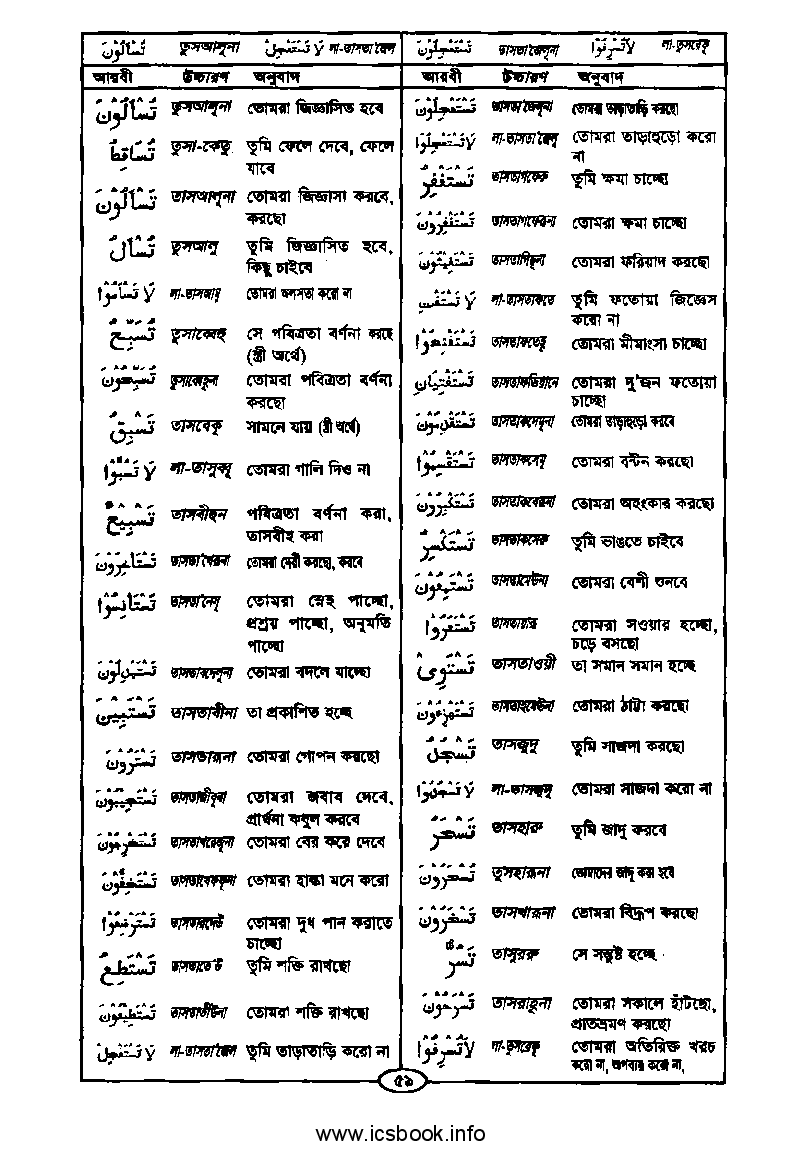 تُسْأَلُوْنَ তুসআলূনা لَا تَسْتَعْجِلْ লা-তাসতা'জেল تَسْتَعْجِلُوْنَ তাসতা'জেলূনা لَا تُسْرِفُوْا লা-তুসরেফূ
আরবী উচ্চারণ অনুবাদ
تُسْأَلُوْنَ তুসআলূনা তোমরা জিজ্ঞাসিত হবে
تُسَاقِطُ তুসা-কেতু তুমি ফেলে দেবে, ফেলে
যাবে
تَسْأَلُوْنَ তাসআলূনা তোমরা জিজ্ঞাসা করবে,
করছো
تُسْأَلُ তুসআলু তুমি জিজ্ঞাসিত হবে,
কিছু চাইবে
لَا تَسْأَمُوْا লা-তাসআমূ তোমরা অলসতা করো না
تُسَبِّحُ তুসাব্বেহু সে পবিত্রতা বর্ণনা করছে
(স্ত্রী অর্থে)
تُسَبِّحُوْنَ তুসাব্বেহূনা তোমরা পবিত্রতা বর্ণনা
করছো
تَسْبِقُ তাসবেকু সামনে যায় (স্ত্রী অর্থে)
لَا تَسُبُّوْا লা-তাসুব্বূ তোমরা গালি দিও না
تَسْبِيْحٌ তাসবীহুন পবিত্রতা বর্ণনা করা,
তাসবীহ করা
تَسْتَأْخِرُوْنَ তাসতা'খেরূনা তোমরা দেরী করছো, করবে
تَسْتَأْنِسُوْا তাসতা'নেসূ তোমরা স্নেহ পাচ্ছো,
প্রশ্রয় পাচ্ছো, অনুমতি
পাচ্ছো
تَسْتَبْدِلُوْنَ তাসতাবদেলূনা তোমরা বদলে যাচ্ছো
تَسْتَبِيْنَ তাসতাবীনা তা প্রকাশিত হচ্ছে
تَسْتَتِرُوْنَ তোমরা গোপন করছো
تَسْتَجِيْبُوْنَ তাসতাজীবূনা তোমরা জবাব দেবে,
প্রার্থনা কবুল করবে
تَسْتَخْرِجُوْنَ তাসতাখরেজূনা তোমরা বের করে দেবে
تَسْتَخِفُّوْنَ তোমরা হাল্কা মনে করো
تَسْتَرْضِعُوْا তোমরা দুধ পান করাতে
চাচ্ছো
تَسْتَطِعْ তাসতাতে'উ তুমি শক্তি রাখছো
تَسْتَطِيْعُوْنَ তাসতাতীউনা তোমরা শক্তি রাখছো
لَا تَسْتَعْجِلْ লা-তাসতা'জেল তুমি তাড়াতাড়ি করো না
আরবী উচ্চারণ অনুবাদ
تَسْتَعْجِلُوْنَ তাসতা'জেলূনা তোমরা তাড়াতাড়ি করছো
لَا تَسْتَعْجِلُوْا লা-তাসতা'জেলূ তোমরা তাড়াহুড়ো করো
না
تَسْتَغْفِرُ তাসতাগফেরু তুমি ক্ষমা চাচ্ছো
تَسْتَغْفِرُوْنَ তাসতাগফেরূনা তোমরা ক্ষমা চাচ্ছো
تَسْتَغِيْثُوْنَ তাসতাগিছূনা তোমরা ফরিয়াদ করছো
لَا تَسْتَفْتِ লা-তাসতাফতে তুমি ফতোয়া জিজ্ঞেস
করো না
تَسْتَفْتِحُوْا তাসতাফতেহূ তোমরা মীমাংসা চাচ্ছো
تَسْتَفْتِيَانِ তাসতাফতিয়ানে তোমরা দু'জন ফতোয়া
চাচ্ছো
تَسْتَقْدِمُوْنَ তাসতাকদেমূনা তোমরা তাড়াহুড়ো করবে
تَسْتَقْسِمُوْا তাসতাকসেমূ তোমরা বন্টন করছো
تَسْتَكْبِرُوْنَ তাসতাকবেরূনা তোমরা অহংকার করছো
তাসতাকসেরু তুমি ভাঙতে চাইবে
تَسْتَمِعُوْنَ তাসতামেউনা তোমরা বেশী শুনবে
তোমরা সওয়ার হচ্ছো,
চড়ে বসছো
تَسْتَوِىْ তাসতাওয়ী তা সমান সমান হচ্ছে
تَسْتَهْزِءُوْنَ তাসতাহযেউনা তোমরা ঠাট্টা করছো
تَسْجُدُ তাসজুদু তুমি সাজদা করছো
لَا تَسْجُدُوْا লা-তাসজুদূ তোমরা সাজদা করো না
تَسْحَرُ তাসহারু তুমি জাদু করবে
تُسْحَرُوْنَ তুসহারূনা তোমাদের জাদু করা হবে
تَسْخَرُوْنَ তাসখারূনা তোমরা বিদ্রূপ করছো
تَسُرُّ তাসুররু সে সন্তুষ্ট হচ্ছে
تَسْرَحُوْنَ তাসরাহূনা তোমরা সকালে হাঁটছো,
প্রাতভ্রমণ করছো
لَا تُسْرِفُوْا লা-তুসরেফূ তোমরা অতিরিক্ত খরচ
করো না, অপব্যয় করো না,
৫৯
www.icsbook.info